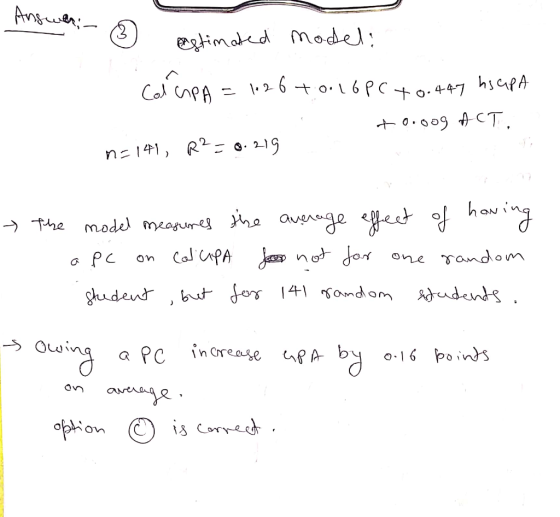 Answer:- ③
estimated model:
Col ĜPA = 1.26 + 0.16 PC + 0.447 hsGPA
+ 0.009 ACT.
n=141, R² = 0.219
→ The model measures the average effect of having
a PC on Col GPA not for one random
student, but for 141 random students.
→ Owing a PC increase GPA by 0.16 points
on average.
option Ⓒ is correct.